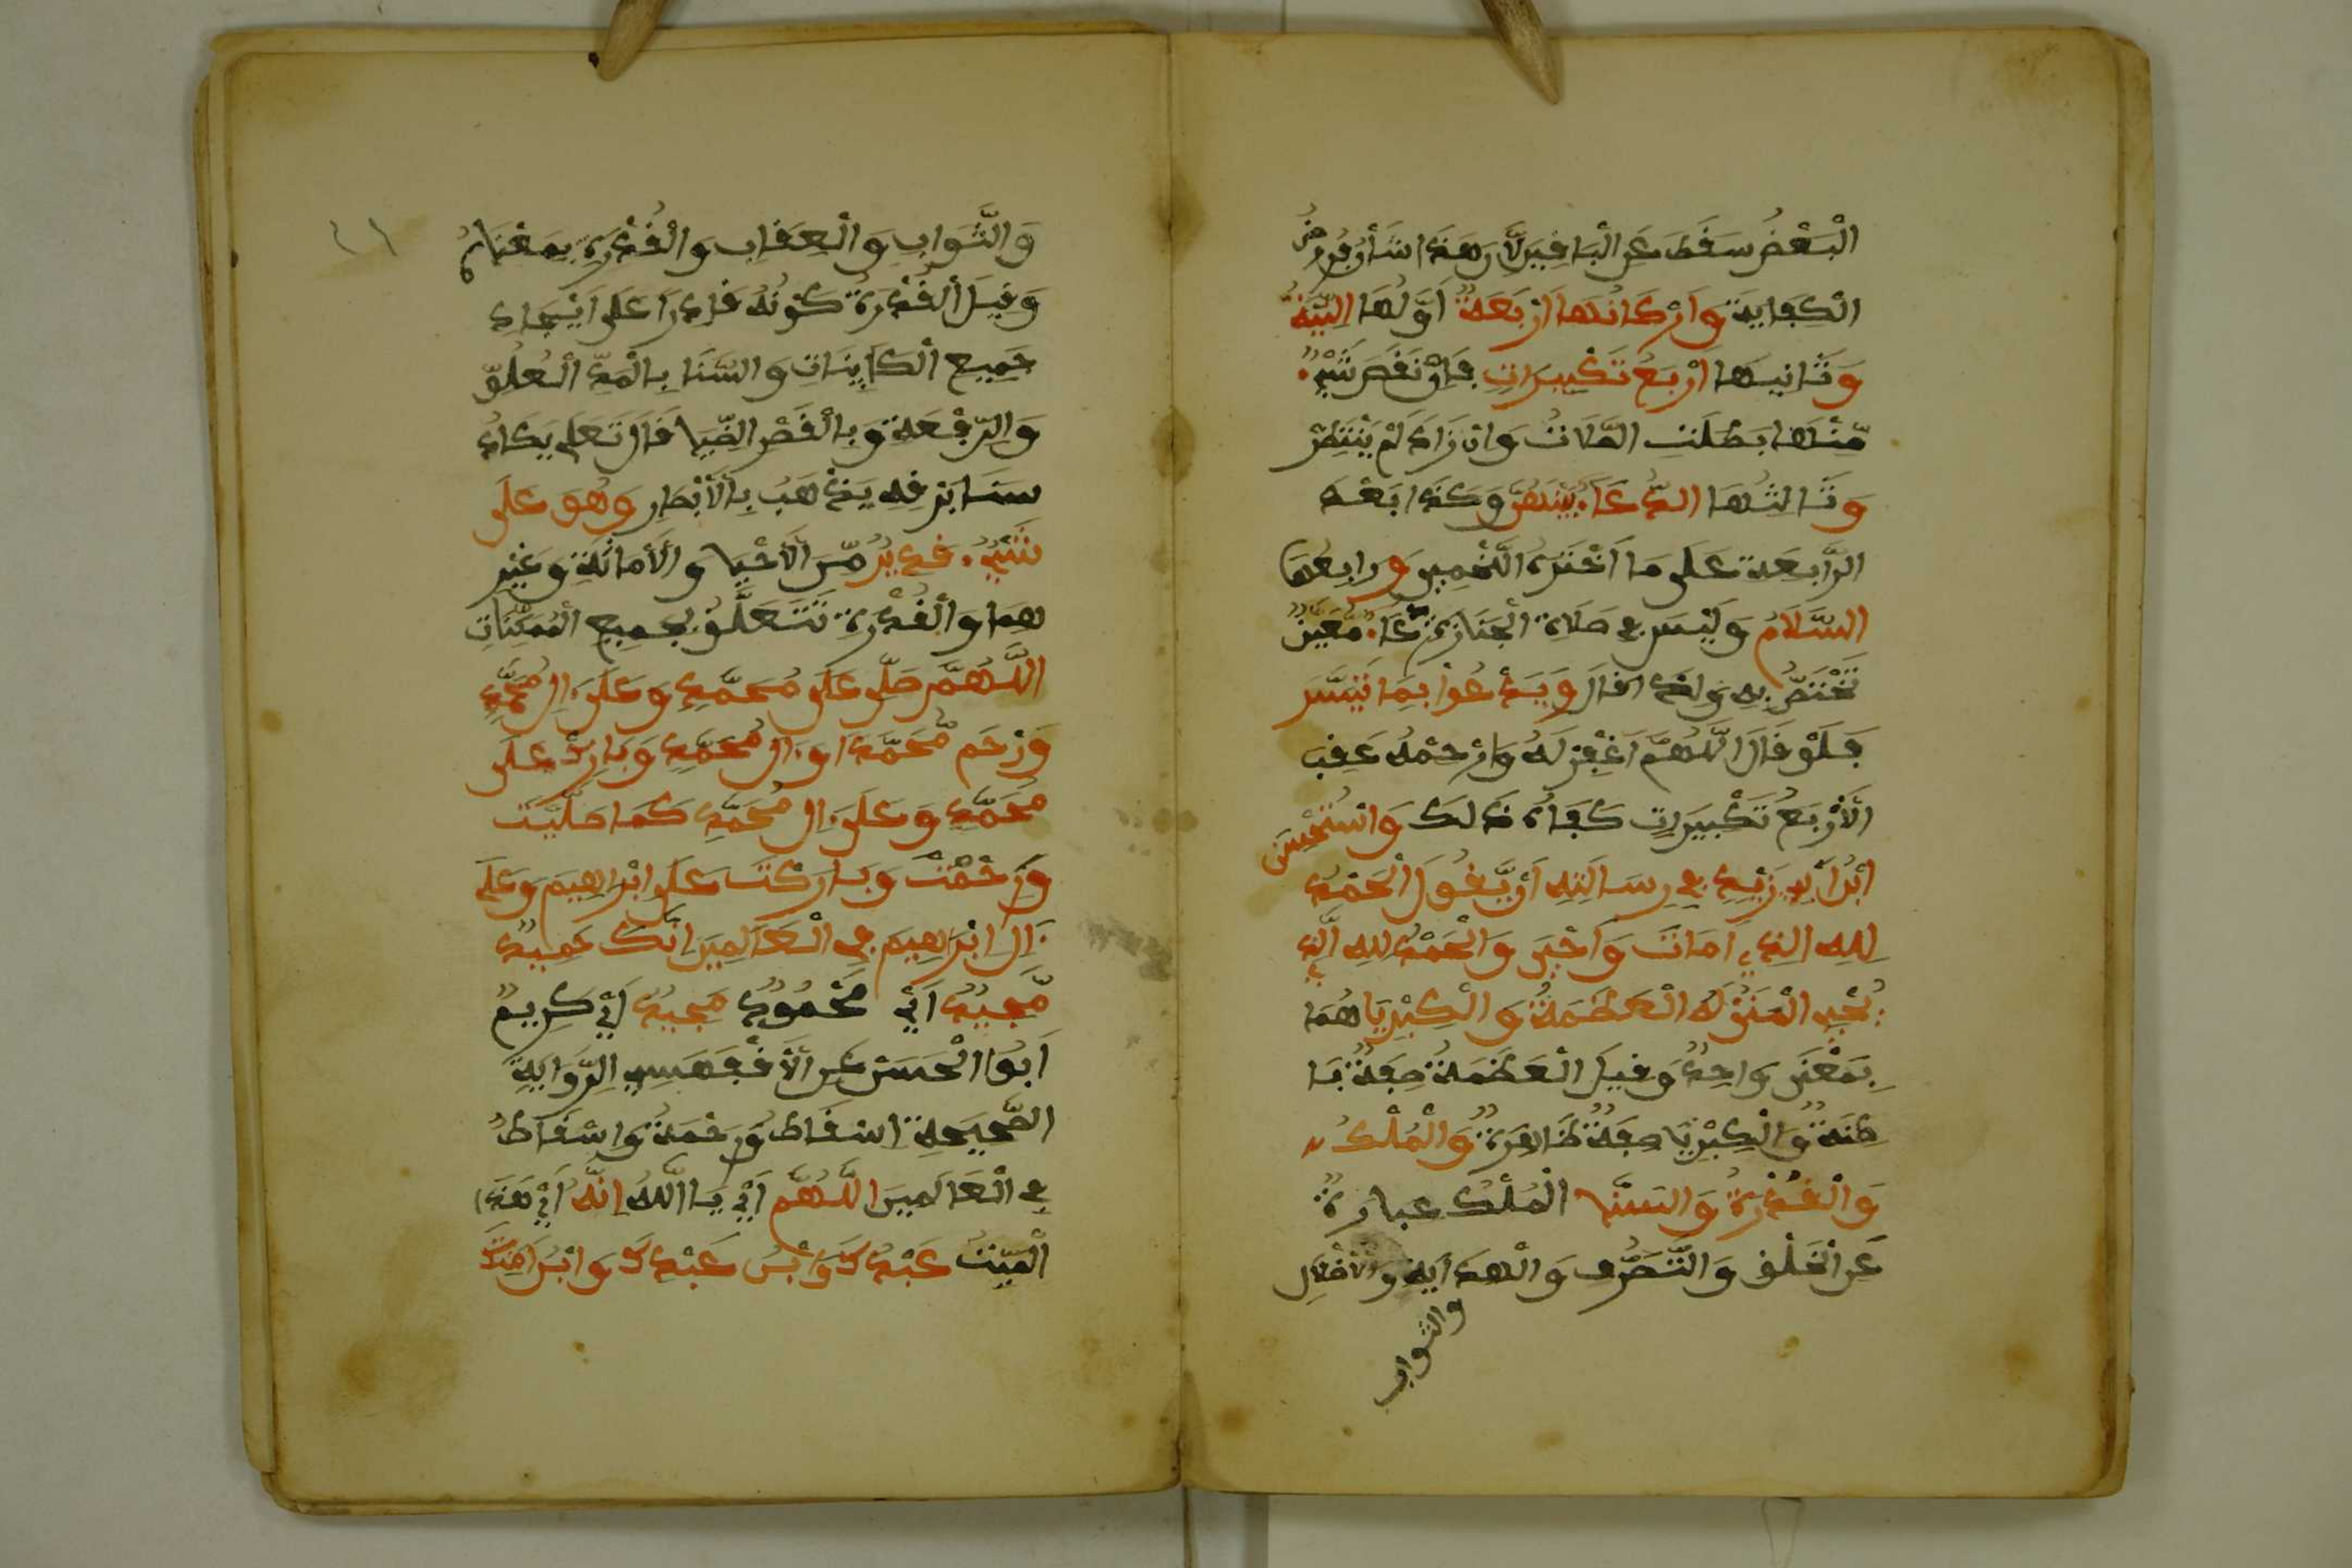 الْبَعْضُ سَقَطَ عَنِ الْبَاقِينَ لِأَنَّ هَذَا شَأْنُ فُرُوضِ
الْكِفَايَةِ وَأَرْكَانُهَا أَرْبَعَةٌ أَوَّلُهَا النِّيَّةُ
وَثَانِيهَا أَرْبَعُ تَكْبِيرَاتٍ فَإِنْ نَقَصَ شَيْءٌ
مِّنْهَا بَطَلَتِ الصَّلَاتُ وَإِن زَادَ لَمْ يُنْتَظَرْ
وَثَالِثُهَا الدُّعَاءُ بَيْنَهُنَّ وَكَذَا بَعْدَ
الرَّابِعَةِ عَلَى مَا اخْتَرَهُ اللَّخْمِي وَرَابِعُهَا
السَّلَامُ وَلَيْسَ فِي صَلَاةِ الْجَنَازَةِ دُعَاءٌ مُّعَيَّنٌ
تَخْتَصُّ بِهِ وَلِذَا قَالَ وَيَدْعُوا بِمَا تَيَسَّرَ
فَلَوْ قَالَ اللَّهُمَّ اغْفِرْ لَهُ وَارْحَمْهُ عَقِبَ
الْأَرْبَعِ تَكْبِيرَاتٍ كَفَاهُ ذَلِكَ وَاسْتَحْسَنَ
ابْنُ أَبِي زَيْدٍ فِي رِسَالَتِهِ أَنْ يَّقُولَ الْحَمْدُ
لِلَّهِ الَّذِي أَمَاتَ وَأَحْيَى وَالْحَمْدُ لِلَّهِ الَّذِي
يُحْيِ الْمَوْتَى لَهُ الْعَظَمَةُ وَالْكِبْرِيَا هُمَا
بِمَعْنًى وَاحِدٌ وَقِيلَ الْعَظَمَةُ صِفَةٌ بَا
طِنَةٌ وَالْكِبْرِيَا صِفَةٌ ظَاهِرَةٌ وَالْمُلْكُ
وَالْقُدْرَةُ وَالسَّنَا الْمُلْكُ عِبَارَةٌ
عَنِ الْخَلْقِ وَالتَّصَرُّفِ وَالْهِدَايَةِ وَالْإِضْلَالِ
والثواب
٤١
وَالثَّوَابِ وَالْعِقَابِ وَالْقُدْرَةُ بِمَعْنَاهُ
وَقِيلَ الْقُدْرَةُ كَوْنُهُ قَادِرًا عَلَى إِيْجَادِ
جَمِيعِ الْكَايِنَاتِ وَالسَّنَا بِالْمَدِّ الْعُلُوِّ
وَالرِّفْعَةِ وَبِالْقَصْرِ الضِّيَا قَالَ تَعَلَى يَكَادُ
سَنَا بَرْقِهِ يَذْهَبُ بِالْأَبْصَارِ وَهُوَ عَلَى
شَيْءٍ قَدِيرٌ مِّنَ الْأَحْيَا وَالْأَمَاتَةِ وَغَيْرِ
هِمَا وَالْقُدْرَةُ تَتَعَلَّقُ بِجَمِيعِ الْمُمَكِّنَاتِ
اللَّهُمَّ صَلِّ عَلَى مُحَمَّدٍ وَعَلَى آلِ مُحَمَّدٍ
وَارْحَم مُّحَمَّدًا وَآلَ مُحَمَّدٍ وَبَارِكْ عَلَى
مُحَمَّدٍ وَعَلَى آلِ مُحَمَّدٍ كَمَا صَلَّيْتَ
وَرَحِمْتَ وَبَارَكْتَ عَلَى إِبْرَاهِيمَ وَعَلَى
آلِ إِبْرَاهِيمَ فِي الْعَالَمِينَ إِنَّكَ حَمِيدٌ
مَّجِيدٌ أَيْ مَحْمُودٌ مَجِيدٌ أَيْ كَرِيمٌ
أَبُوا الْحَسَنْ عَنِ الْأَقْفَهَسِي الرِّوَايَةُ
الصَّحِيحَةِ إِسْقَاطُ وَرَحْمَةُ وَإِسْقَاطُ
فِي الْعَالَمِينَ اللَّهُمَّ أَيْ يَا اللَّهُ إِنَّهُ أَيْ هَذَا
الْمَيِّتُ عَبْدُكَ وَابْنُ عَبْدِكَ وَابْنُ أَمَتِكَ